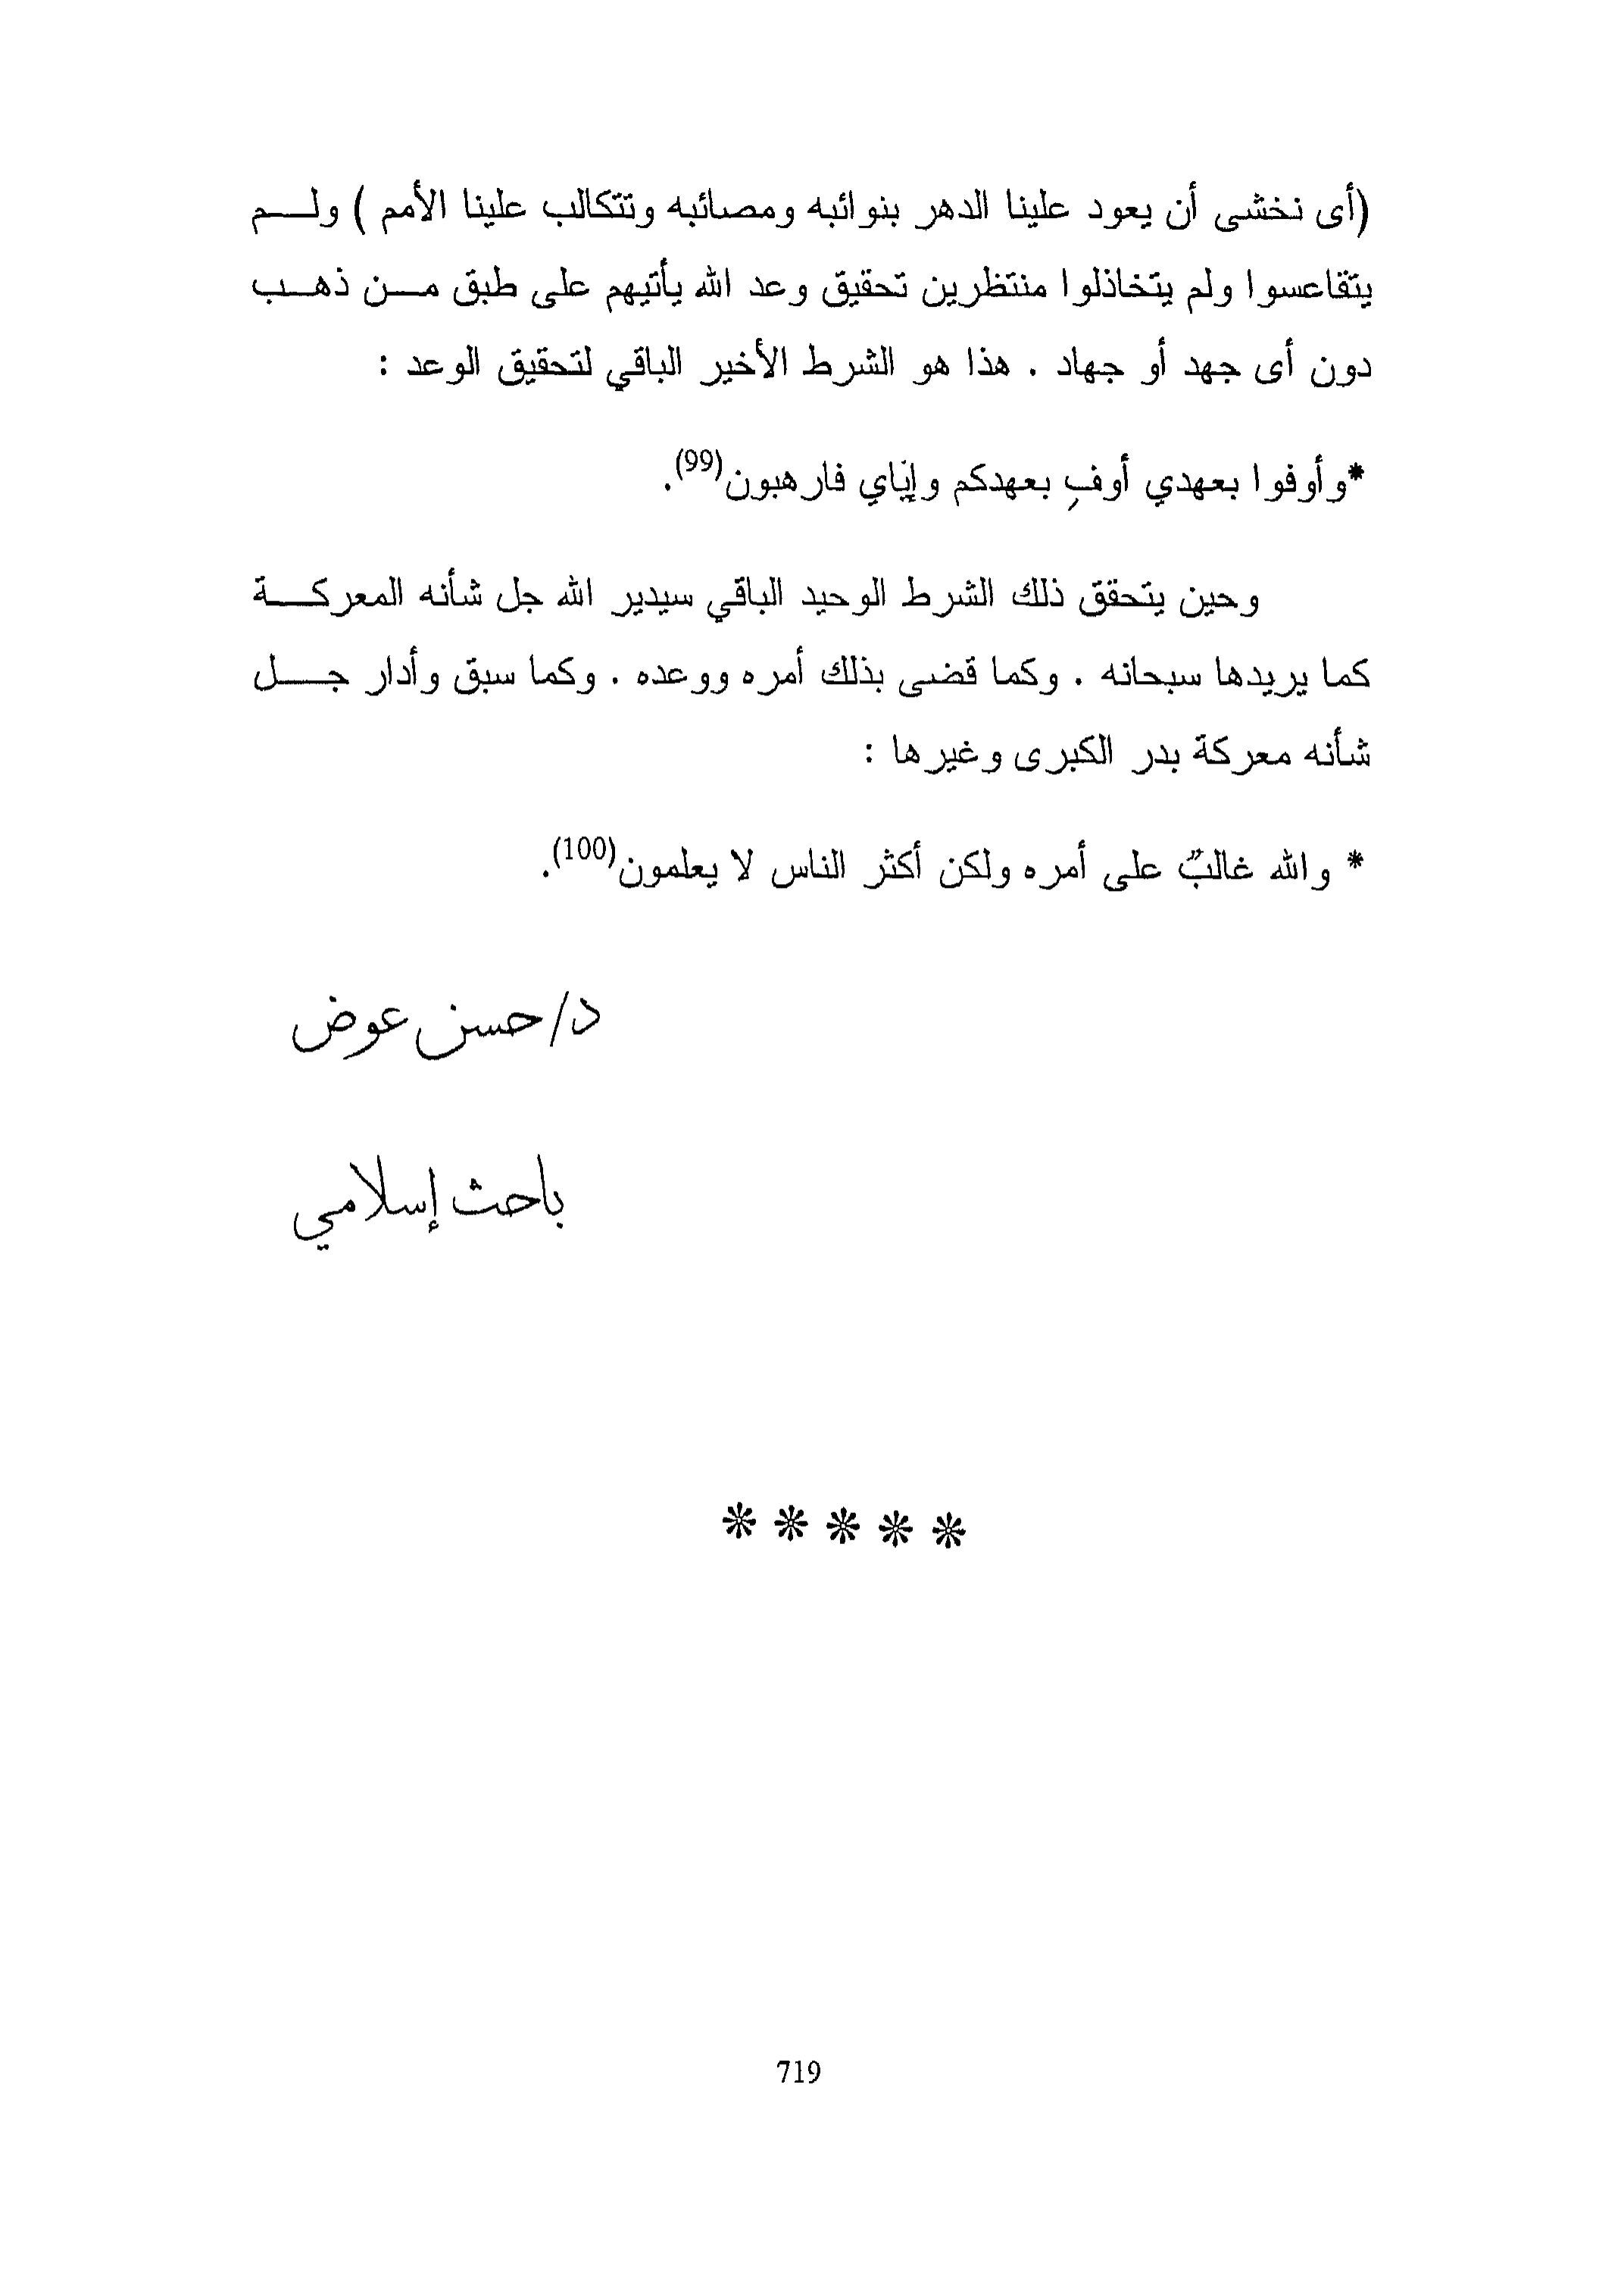 (أى نخشى أن يعود علينا الدهر بنوائبه ومصائبه وتتكالب علينا الأمم ) ولم
يتقاعسوا ولم يتخاذلوا منتظرين تحقيق وعد الله يأتيهم على طبق من ذهب
دون أى جهد أو جهاد . هذا هو الشرط الأخير الباقي لتحقيق الوعد :
*وأوفوا بعهدي أوفِ بعهدكم وإيّاي فارهبون(99).
وحين يتحقق ذلك الشرط الوحيد الباقي سيدير الله جل شأنه المعركة
كما يريدها سبحانه . وكما قضى بذلك أمره ووعده . وكما سبق وأدار جل
شأنه معركة بدر الكبرى وغيرها :
* والله غالبٌ على أمره ولكن أكثر الناس لا يعلمون(100).
د/حسن عوض
باحث إسلامي
* * * * *
719